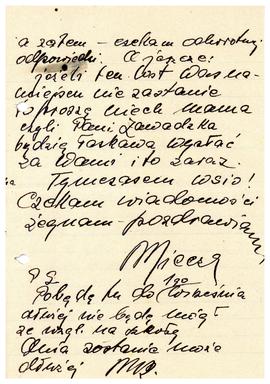 a zatem – czekam odwrotnej
odpowiedzi. A jeszcze:
jeżeli ten list Was na
miejscu nie zastanie
to proszę niech mama
czyli Pani Zawadzka
będzie łaskawa wysłać
za Wami i to zaraz.
Tymczasem wsio!
Czekam wiadomości
żegnam – pozdrawiam
Miecz
PS
Pobędę tu do 1go września
dłużej nie będę mógł
ze wzgl. na szkołę
Ania zostanie może
dłużej